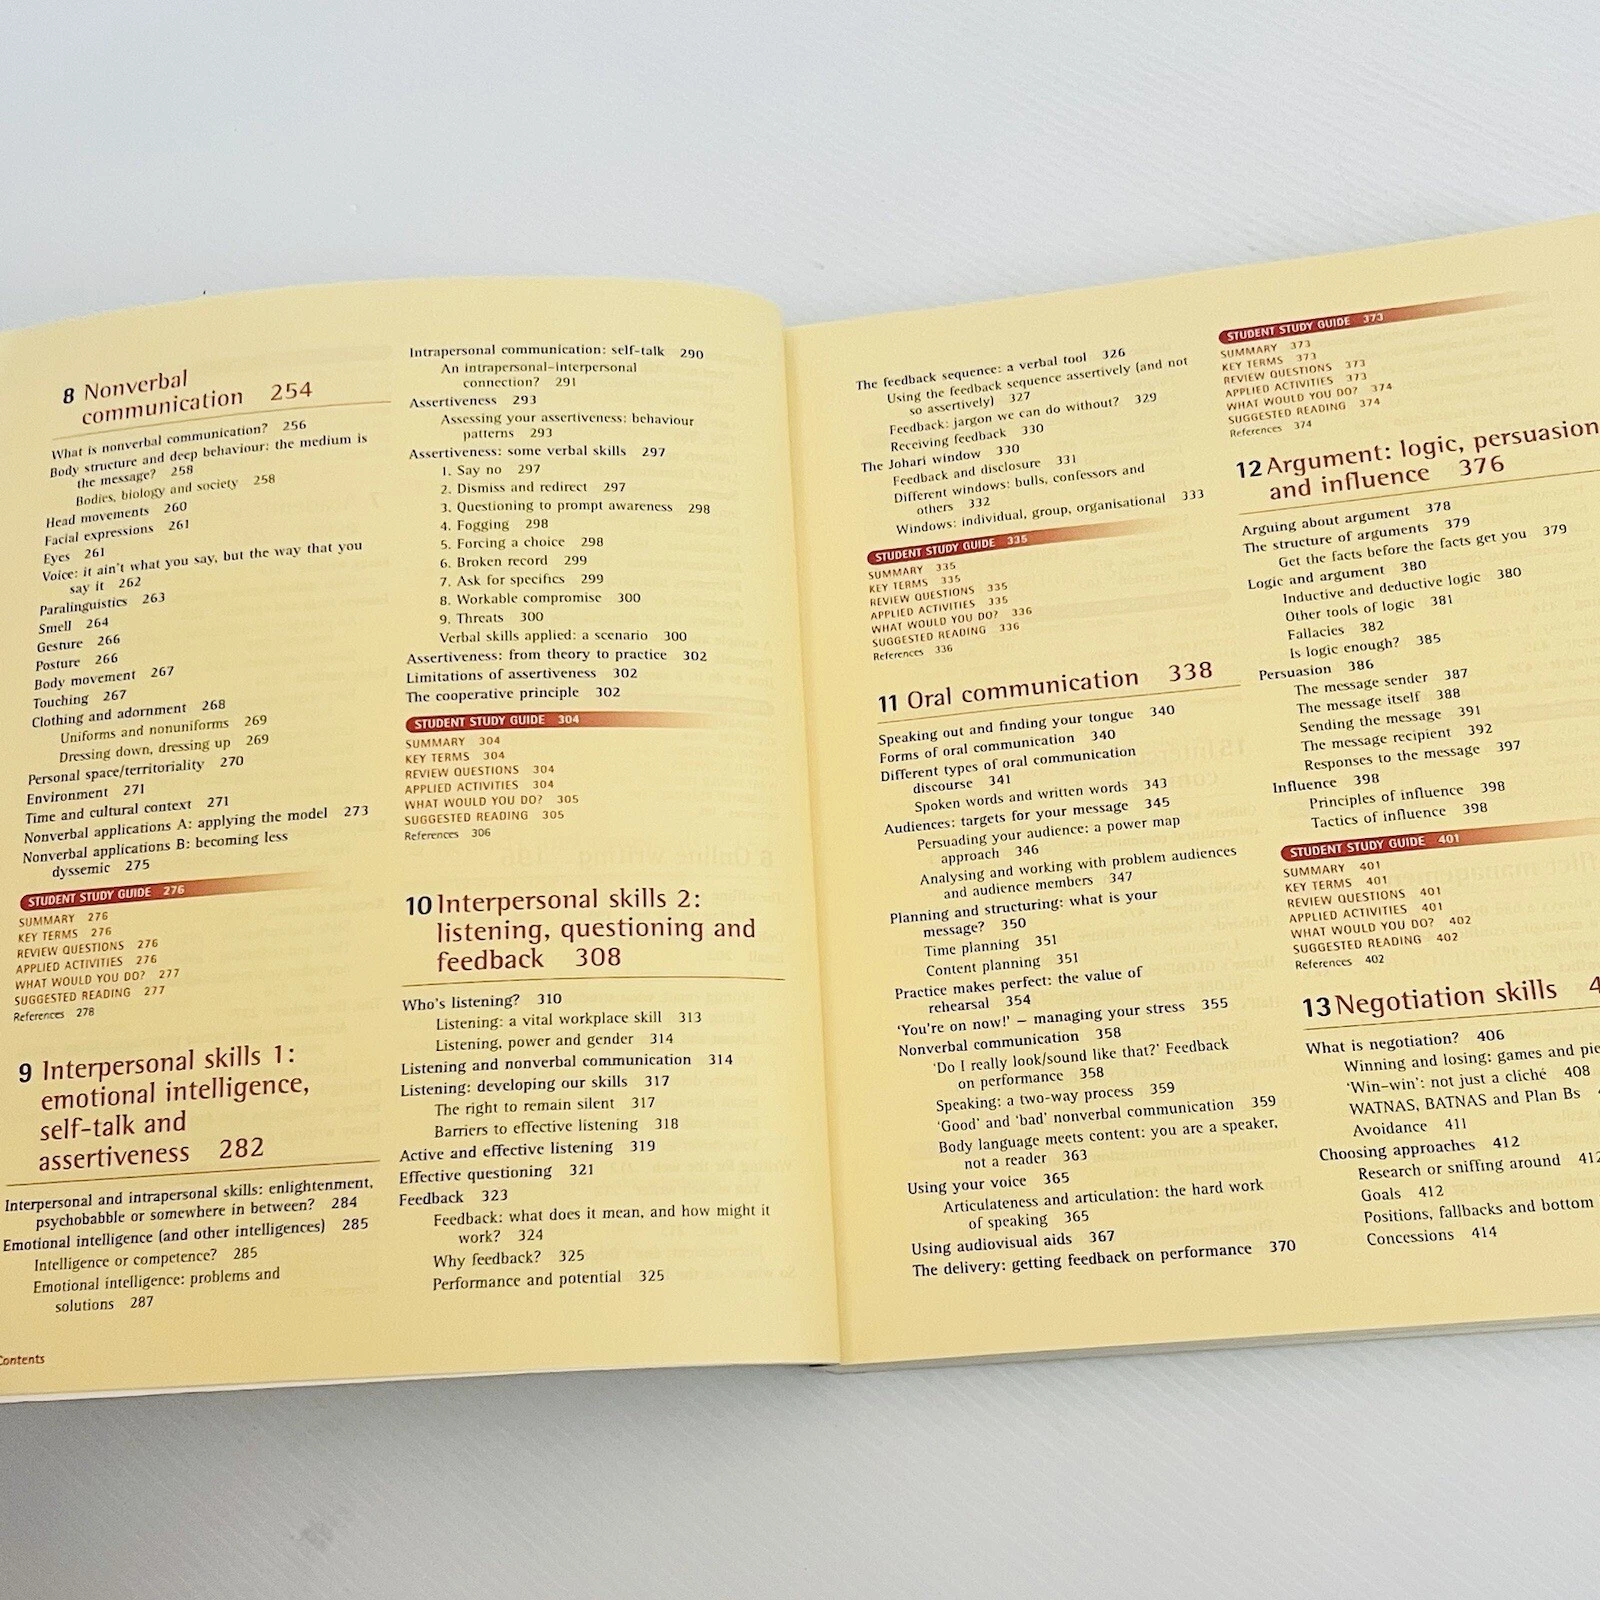 8 Nonverbal
communication 254
What is nonverbal communication? 256
Body structure and deep behaviour: the medium is
the message? 258
Bodies, biology and society 258
Head movements 260
Facial expressions 261
Eyes 261
Voice: it ain't what you say, but the way that you
say it 262
Paralinguistics 263
Smell 264
Gesture 266
Posture 266
Body movement 267
Touching 267
Clothing and adornment 268
Uniforms and nonuniforms 269
Dressing down, dressing up 269
Personal space/territoriality 270
Environment 271
Time and cultural context 271
Nonverbal applications A: applying the model 273
Nonverbal applications B: becoming less
dyssemic 275
STUDENT STUDY GUIDE 276
SUMMARY 276
KEY TERMS 276
REVIEW QUESTIONS 276
APPLIED ACTIVITIES 276
WHAT WOULD YOU DO? 277
SUGGESTED READING 277
References 278
9 Interpersonal skills 1:
emotional intelligence,
self-talk and
assertiveness 282
Interpersonal and intrapersonal skills: enlightenment,
psychobabble or somewhere in between? 284
Emotional intelligence (and other intelligences) 285
Intelligence or competence? 285
Emotional intelligence: problems and
solutions 287
Contents
Intrapersonal communication: self-talk 290
An intrapersonal–interpersonal
connection? 291
Assertiveness 293
Assessing your assertiveness: behaviour
patterns 293
Assertiveness: some verbal skills 297
1. Say no 297
2. Dismiss and redirect 297
3. Questioning to prompt awareness 298
4. Fogging 298
5. Forcing a choice 298
6. Broken record 299
7. Ask for specifics 299
8. Workable compromise 300
9. Threats 300
Verbal skills applied: a scenario 300
Assertiveness: from theory to practice 302
Limitations of assertiveness 302
The cooperative principle 302
STUDENT STUDY GUIDE 304
SUMMARY 304
KEY TERMS 304
REVIEW QUESTIONS 304
APPLIED ACTIVITIES 304
WHAT WOULD YOU DO? 305
SUGGESTED READING 305
References 306
10 Interpersonal skills 2:
listening, questioning and
feedback 308
Who's listening? 310
Listening: a vital workplace skill 313
Listening, power and gender 314
Listening and nonverbal communication 314
Listening: developing our skills 317
The right to remain silent 317
Barriers to effective listening 318
Active and effective listening 319
Effective questioning 321
Feedback 323
Feedback: what does it mean, and how might it
work? 324
Why feedback? 325
Performance and potential 325
The feedback sequence: a verbal tool 326
Using the feedback sequence assertively (and not
so assertively) 327
Feedback: jargon we can do without? 329
Receiving feedback 330
The Johari window 330
Feedback and disclosure 331
Different windows: bulls, confessors and
others 332
Windows: individual, group, organisational 333
STUDENT STUDY GUIDE 335
SUMMARY 335
KEY TERMS 335
REVIEW QUESTIONS 335
APPLIED ACTIVITIES 335
WHAT WOULD YOU DO? 336
SUGGESTED READING 336
References 336
11 Oral communication 338
Speaking out and finding your tongue 340
Forms of oral communication 340
Different types of oral communication
discourse 341
Spoken words and written words 343
Audiences: targets for your message 345
Persuading your audience: a power map
approach 346
Analysing and working with problem audiences
and audience members 347
Planning and structuring: what is your
message? 350
Time planning 351
Content planning 351
Practice makes perfect: the value of
rehearsal 354
'You're on now!' – managing your stress 355
Nonverbal communication 358
'Do I really look/sound like that?' Feedback
on performance 358
Speaking: a two-way process 359
'Good' and 'bad' nonverbal communication 359
Body language meets content: you are a speaker,
not a reader 363
Using your voice 365
Articulateness and articulation: the hard work
of speaking 365
Using audiovisual aids 367
The delivery: getting feedback on performance 370
STUDENT STUDY GUIDE 373
SUMMARY 373
KEY TERMS 373
REVIEW QUESTIONS 373
APPLIED ACTIVITIES 373
WHAT WOULD YOU DO? 374
SUGGESTED READING 374
References 374
12 Argument: logic, persuasion
and influence 376
Arguing about argument 378
The structure of arguments 379
Get the facts before the facts get you 379
Logic and argument 380
Inductive and deductive logic 380
Other tools of logic 381
Fallacies 382
Is logic enough? 385
Persuasion 386
The message sender 387
The message itself 388
Sending the message 391
The message recipient 392
Responses to the message 397
Influence 398
Principles of influence 398
Tactics of influence 398
STUDENT STUDY GUIDE 401
SUMMARY 401
KEY TERMS 401
REVIEW QUESTIONS 401
APPLIED ACTIVITIES 401
WHAT WOULD YOU DO? 402
SUGGESTED READING 402
References 402
13 Negotiation skills 4
What is negotiation? 406
Winning and losing: games and pie
'Win–win': not just a cliché 408
WATNAS, BATNAS and Plan Bs
Avoidance 411
Choosing approaches 412
Research or sniffing around 412
Goals 412
Positions, fallbacks and bottom
Concessions 414